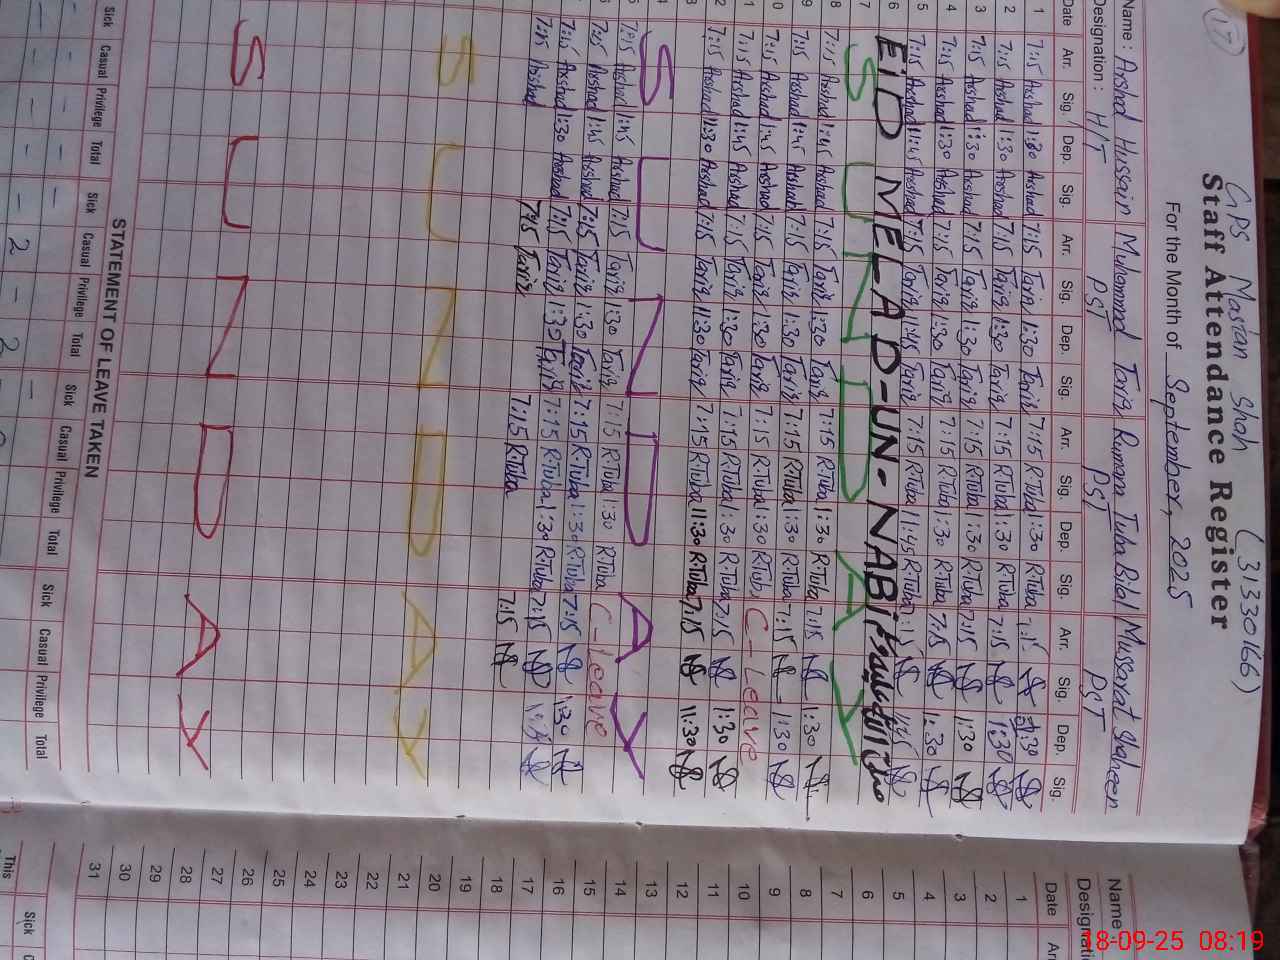 17
GPS Mastan Shah (31330166)
Staff Attendance Register
For the Month of September, 2025
Name : Arshad Hussain Muhammad Tariq Rumana Tuba Bilal Mussarat Shaheen
Designation : H/T PST PST PST
Date Arr. Sig. Dep. Sig. Arr. Sig. Dep. Sig. Arr. Sig. Dep. Sig. Arr. Sig. Dep. Sig.
1 7:15 Arshad 1:30 Arshad 7:15 Tariq 1:30 Tariq 7:15 R.Tuba 1:30 R.Tuba
2 7:15 Arshad 1:30 Arshad 7:15 Tariq 1:30 Tariq 7:15 R.Tuba 1:30 R.Tuba 7:15 1:30
3 7:15 Arshad 1:30 Arshad 7:15 Tariq 1:30 Tariq 7:15 R.Tuba 1:30 R.Tuba 7:15 1:30
4 7:15 Arshad 1:30 Arshad 7:15 Tariq 1:30 Tariq 7:15 R.Tuba 1:30 R.Tuba 7:15 1:30
5 7:15 Arshad 11:45 Arshad 7:15 Tariq 11:45 Tariq 7:15 R.Tuba 11:45 R.Tuba 7:15
6 EID MELAD-UN-NABI
7 SUNDAY
8 7:15 Arshad 1:45 Arshad 7:15 Tariq 1:30 Tariq 7:15 R.Tuba 1:30 R.Tuba 7:15 1:30
9 7:15 Arshad 1:45 Arshad 7:15 Tariq 1:30 Tariq 7:15 R.Tuba 1:30 R.Tuba 7:15 1:30
0 7:15 Arshad 1:45 Arshad 7:15 Tariq 1:30 Tariq 7:15 R.Tuba 1:30 R.Tuba C-Leave
1 7:15 Arshad 1:45 Arshad 7:15 Tariq 1:30 Tariq 7:15 R.Tuba 1:30 R.Tuba 7:15 1:30
2 7:15 Arshad 11:30 Arshad 7:15 Tariq 11:30 Tariq 7:15 R.Tuba 11:30 R.Tuba 7:15 11:30
3
4 SUNDAY
5 7:15 Arshad 1:45 Arshad 7:15 Tariq 1:30 Tariq 7:15 R.Tuba 1:30 R.Tuba C-Leave
7:15 Arshad 1:45 Arshad 7:15 Tariq 1:30 Tariq 7:15 R.Tuba 1:30 R.Tuba 7:15 1:30
7:15 Arshad 1:30 Arshad 7:15 Tariq 1:30 Tariq 7:15 R.Tuba 1:30 R.Tuba 7:15
7:15 Arshad 7:15 Tariq 7:15 R.Tuba 7:15
SUNDAY
SUNDAY
STATEMENT OF LEAVE TAKEN
Sick Casual Privilege Total Sick Casual Privilege Total Sick Casual Privilege Total Sick Casual Privilege Total
- - - - - 2 - 2 -
Name :
Designati
Date Ar
1
2
3
4
5
6
7
8
9
10
11
12
13
14
15
16
17
18
19
20
21
22
23
24
25
26
27
28
29
30
31
Sick C
This
18-09-25 08:19